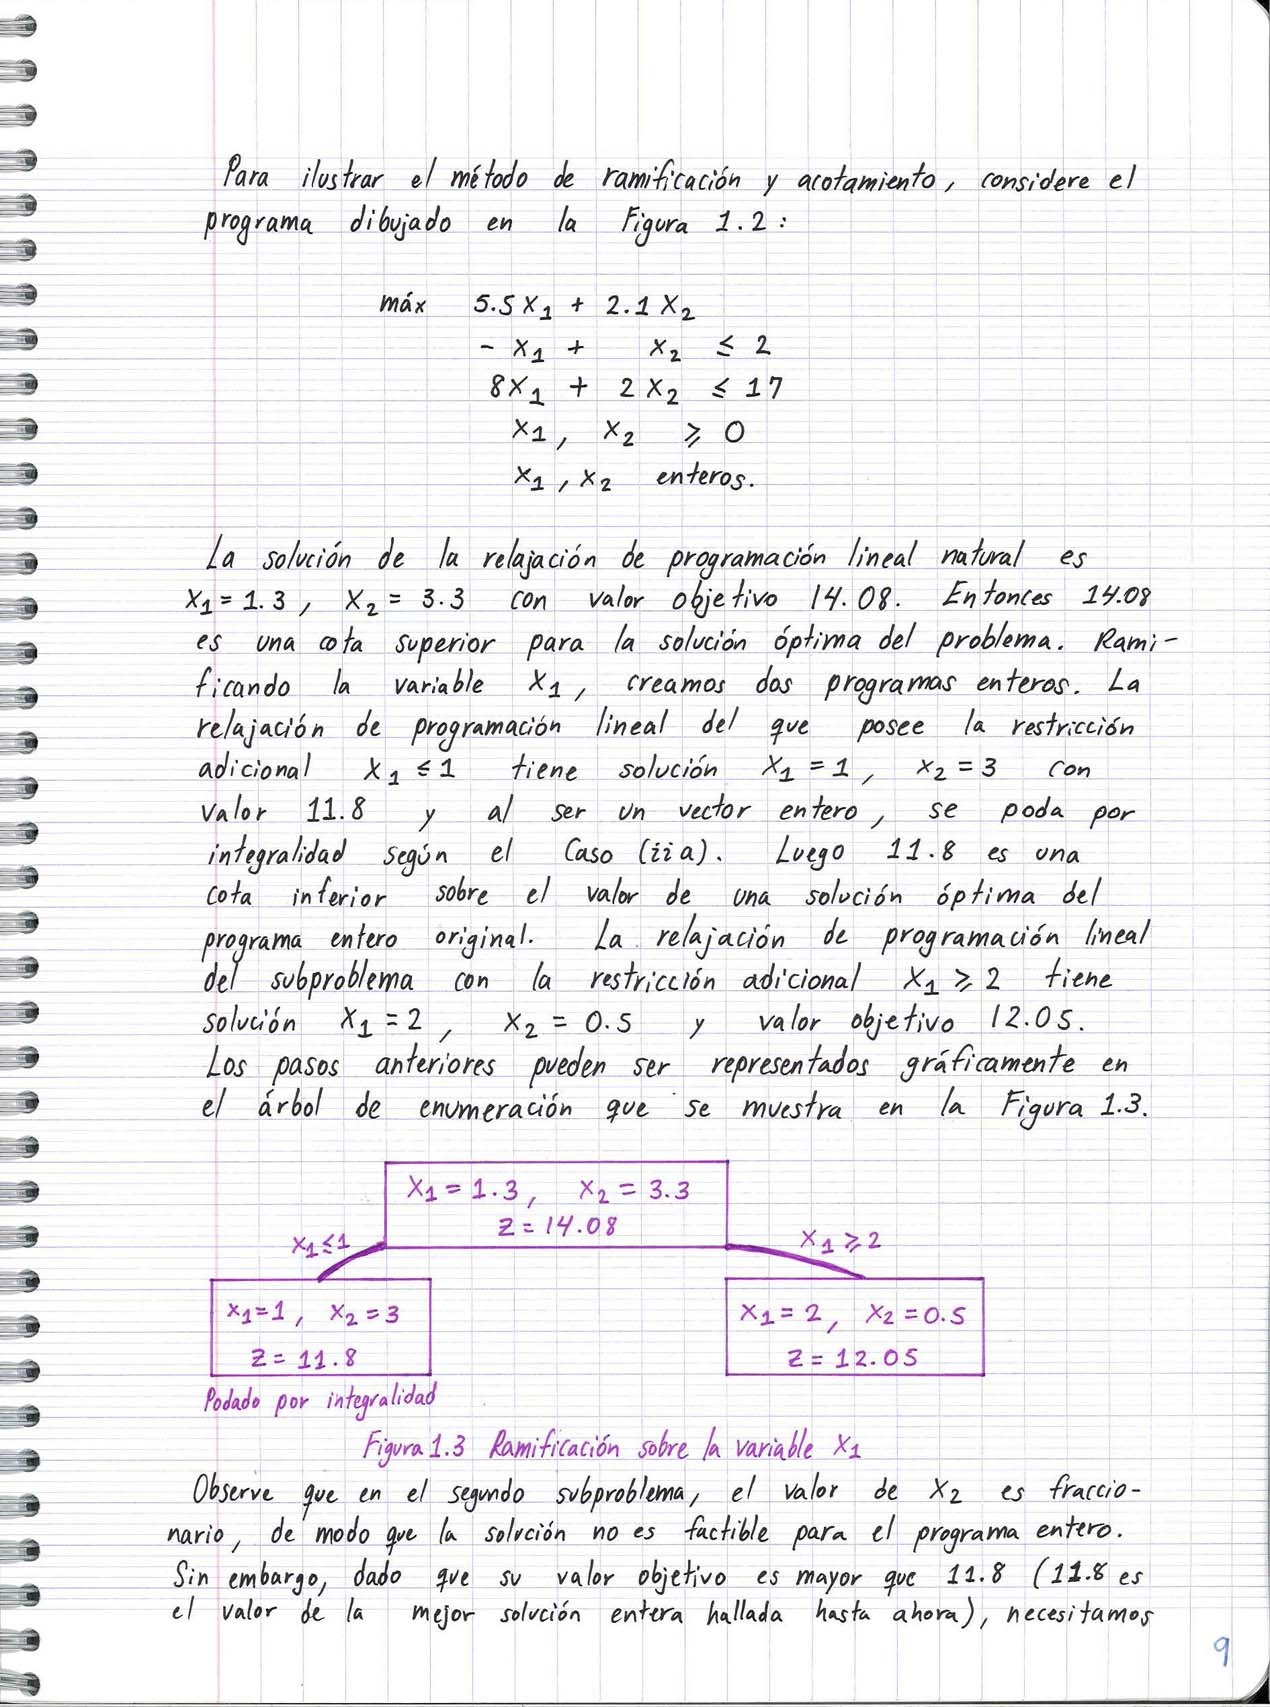 Para ilustrar el método de ramificación y acotamiento, considere el
programa dibujado en la Figura 1.2:
máx 5.5x₁ + 2.1x₂
- x₁ + x₂ ≤ 2
8x₁ + 2x₂ ≤ 17
x₁, x₂ ≥ 0
x₁, x₂ enteros.
La solución de la relajación de programación lineal natural es
x₁ = 1.3, x₂ = 3.3 con valor objetivo 14.08. Entonces 14.08
es una cota superior para la solución óptima del problema. Rami-
ficando la variable x₁, creamos dos programas enteros. La
relajación de programación lineal del que posee la restricción
adicional x₁ ≤ 1 tiene solución x₁ = 1, x₂ = 3 con
valor 11.8 y al ser un vector entero, se poda por
integralidad según el Caso (iia). Luego 11.8 es una
cota inferior sobre el valor de una solución óptima del
programa entero original. La relajación de programación lineal
del subproblema con la restricción adicional x₁ ≥ 2 tiene
solución x₁ = 2, x₂ = 0.5 y valor objetivo 12.05.
Los pasos anteriores pueden ser representados gráficamente en
el árbol de enumeración que se muestra en la Figura 1.3.
x₁ = 1.3, x₂ = 3.3
z = 14.08
x₁ ≤ 1
x₁ ≥ 2
x₁ = 1, x₂ = 3
z = 11.8
x₁ = 2, x₂ = 0.5
z = 12.05
Podado por integralidad
Figura 1.3 Ramificación sobre la variable x₁
Observe que en el segundo subproblema, el valor de x₂ es fraccio-
nario, de modo que la solución no es factible para el programa entero.
Sin embargo, dado que su valor objetivo es mayor que 11.8 (11.8 es
el valor de la mejor solución entera hallada hasta ahora), necesitamos
9